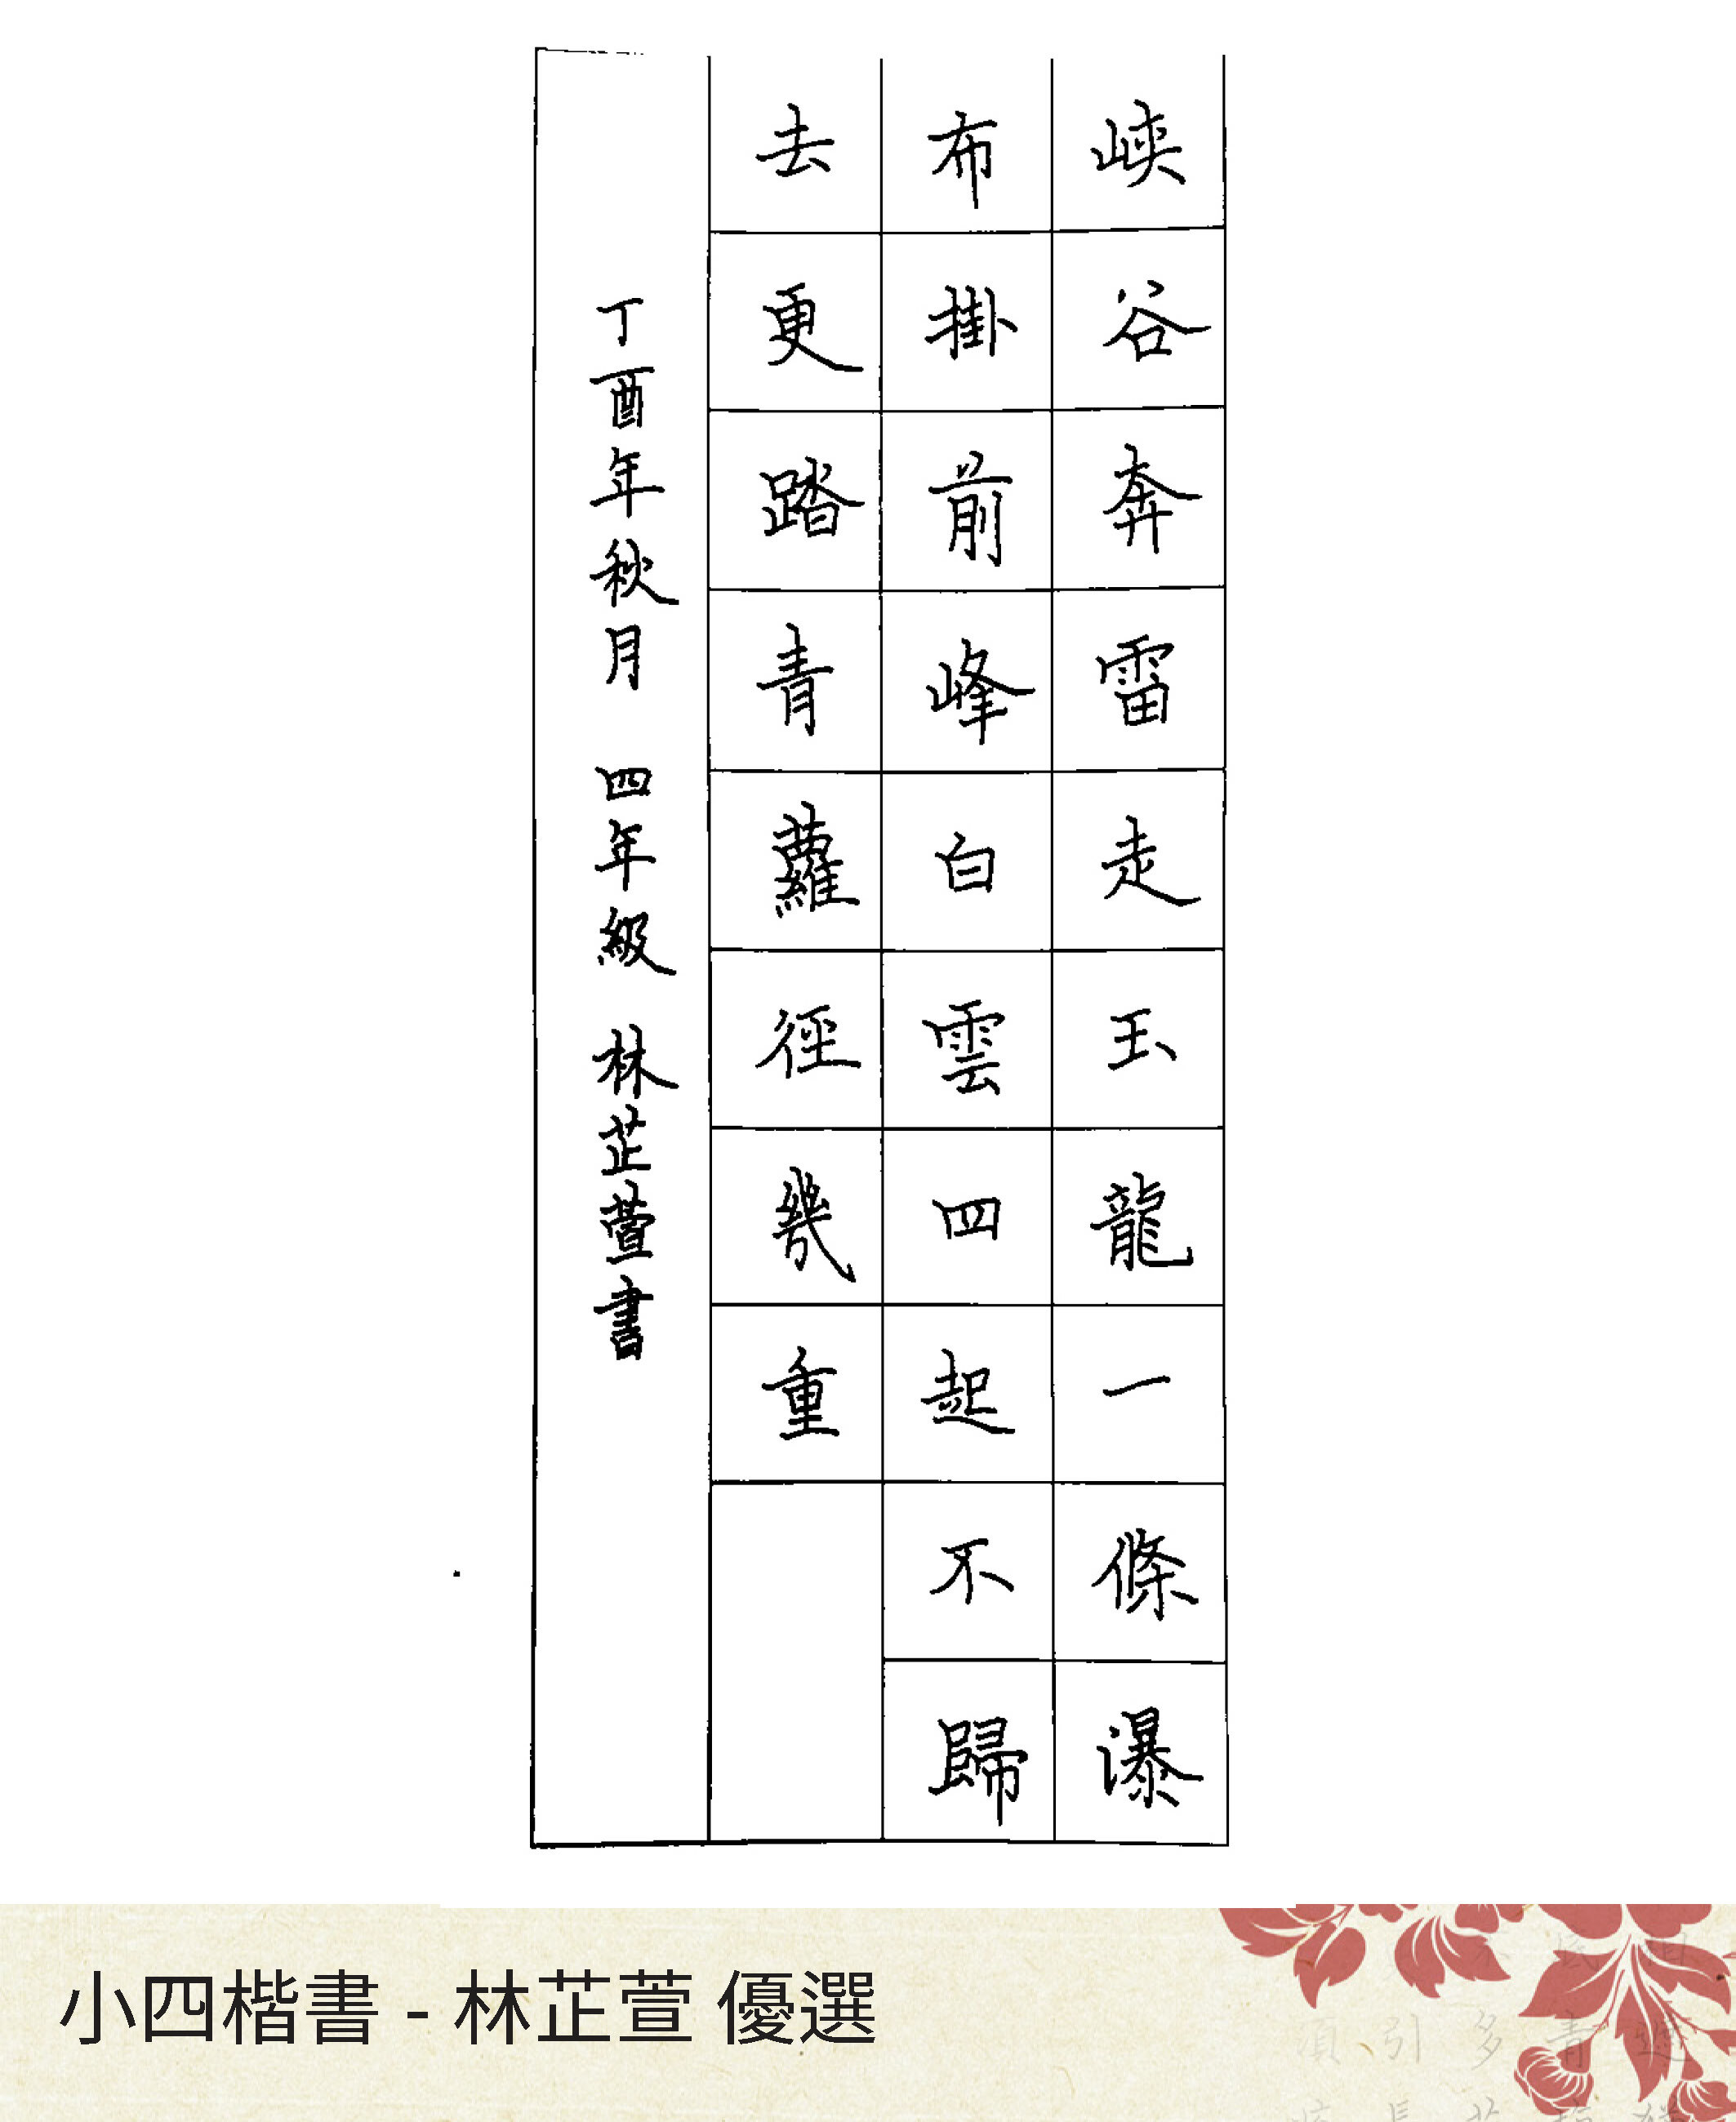 峽谷奔雷走玉龍一條瀑
布掛前峰白雲四起不歸
去更踏青蘿徑幾重
丁酉年秋月 四年級 林芷萱書
小四楷書 - 林芷萱 優選